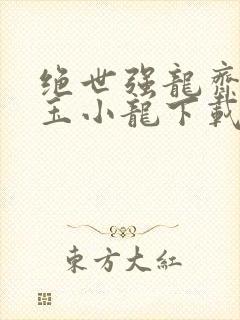 绝世强龍齋
玉小龍下載
東方大紅